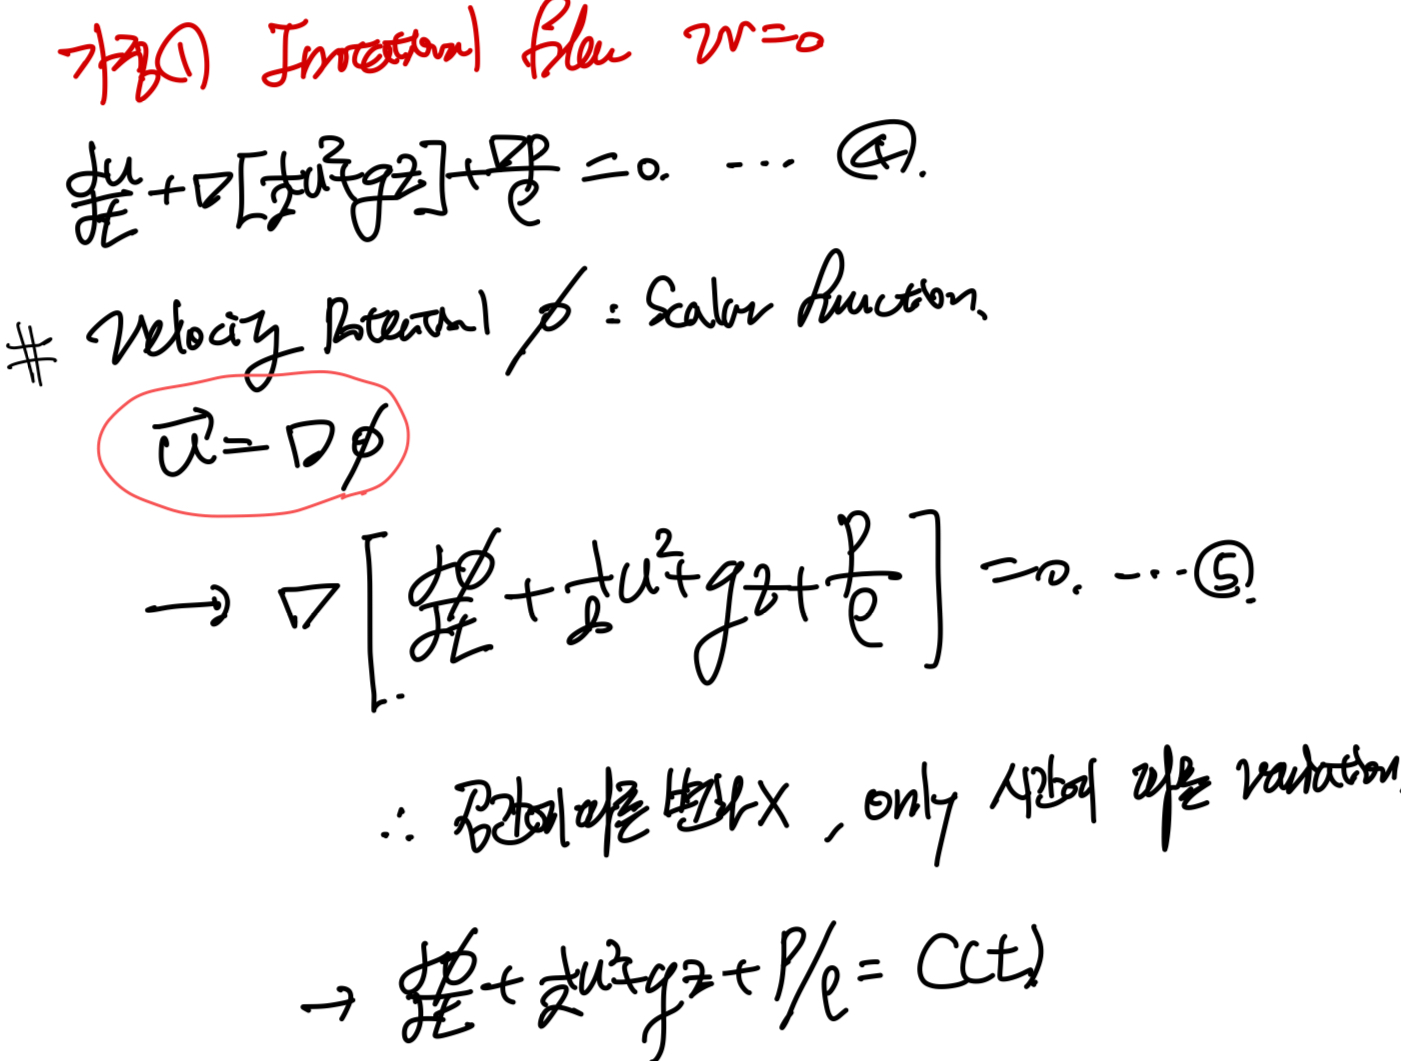 가정① Irrotational flow w=0
du/dt + ∇[½u²+gz] + ∇P/ρ = 0. ... ④.
# Velocity Potential ϕ : Scalar function.
u⃗ = ∇ϕ
→ ∇[dϕ/dt + ½u² + gz + P/ρ] = 0. ... ⑤.
∴ 공간에 따른 변화 X, only 시간에 따른 variation
→ dϕ/dt + ½u² + gz + P/ρ = C(t)